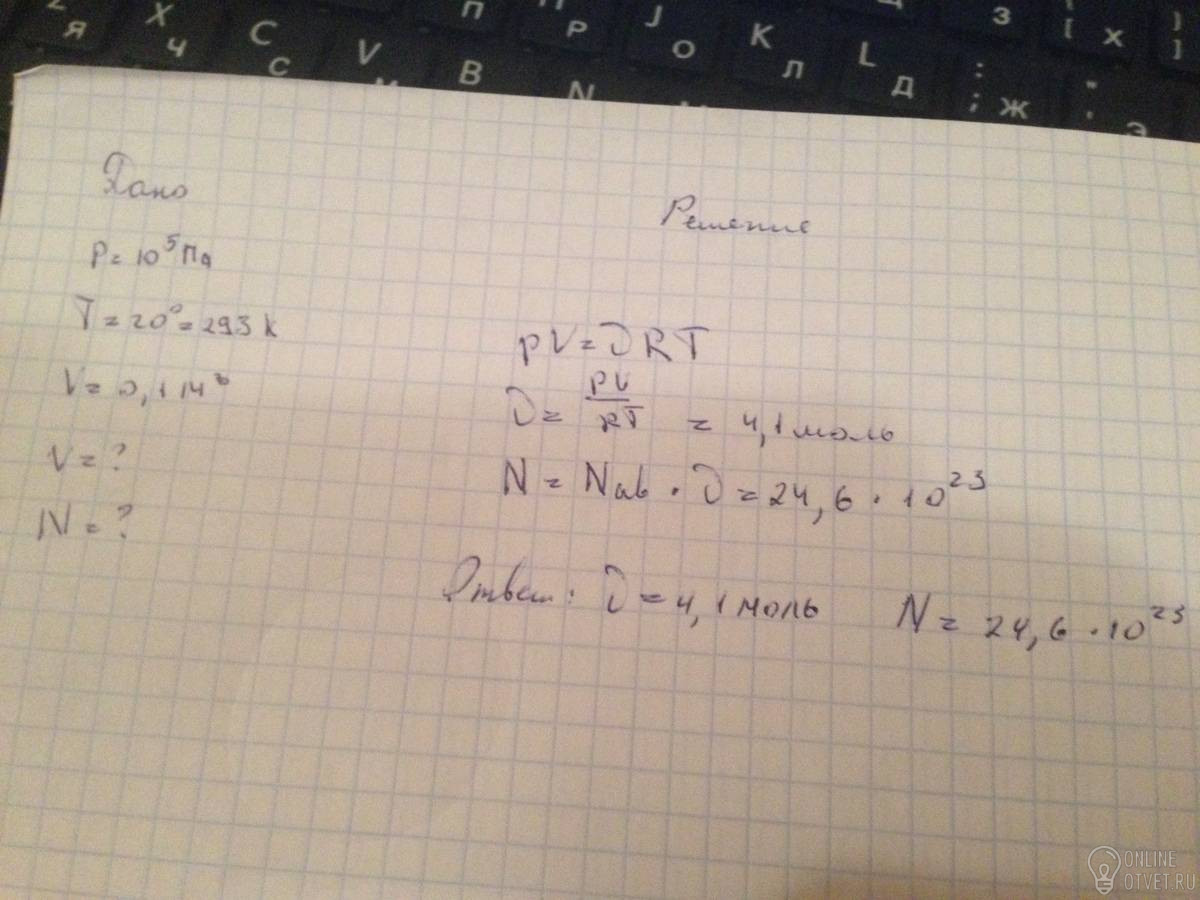 Z Я
X Ч
C С
V М
B
N
П
Р
J О
K Л
L Д
З
[ Х
]
: ; Ж
" ' Э
Дано
P = 10⁵ Па
T = 20° = 293 K
V = 0,1 м³
ν = ?
N = ?
Решение
pV = νRT
ν = pV/RT = 4,1 моль
N = Nав · ν = 24,6 · 10²³
Ответ: ν = 4,1 моль N = 24,6 · 10²³
ONLINE
OTVET.RU